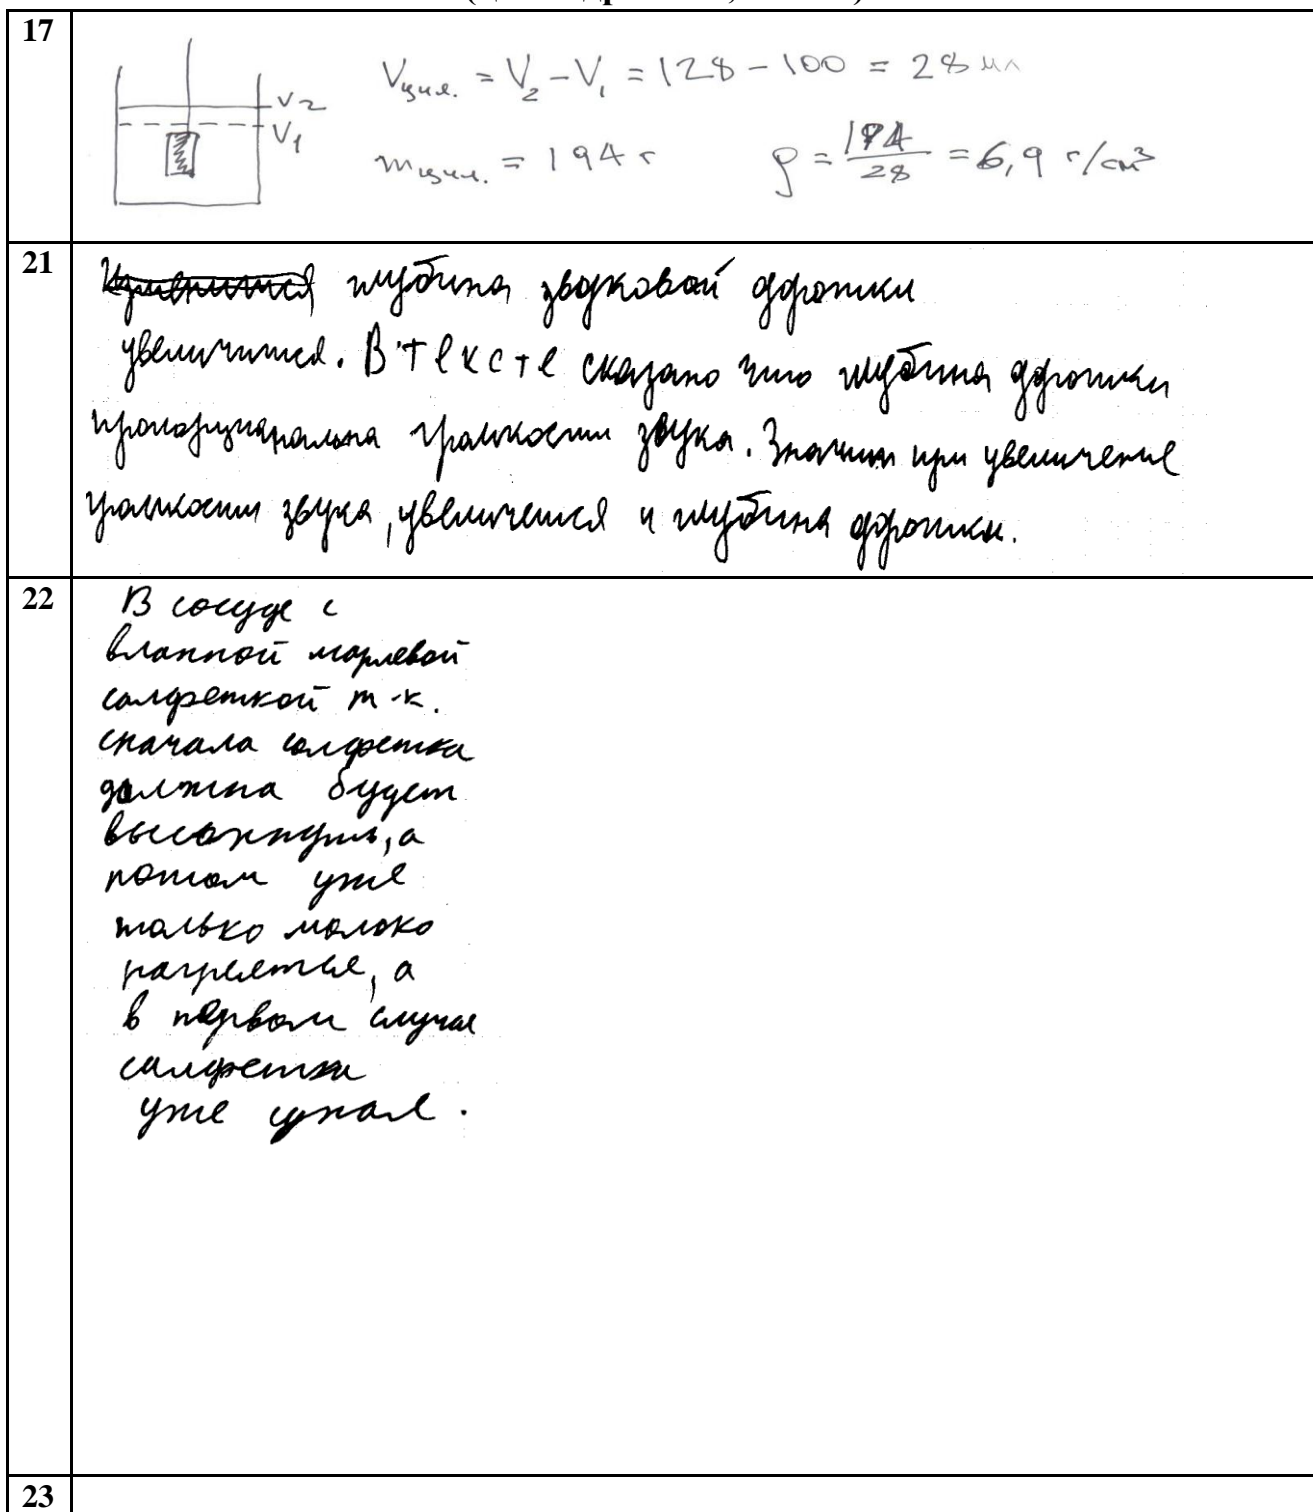 17
V цил. = V₂ – V₁ = 128 – 100 = 28 мл
V2
V1
m цил. = 194 г ρ = 194/28 = 6,9 г/см³
21
глубина звуковой дорожки
увеличится. В тексте сказано что глубина дорожки
пропорциональна громкости звука. Значит при увеличение
громкости звука, увеличется и глубина дорожки.
22
В сосуде с
влажной марлевой
салфеткой т-к.
сначала салфетка
должна будет
высохнуть, а
потом уже
только молоко
нагреется, а
в первом случае
салфетка
уже сухая.
23